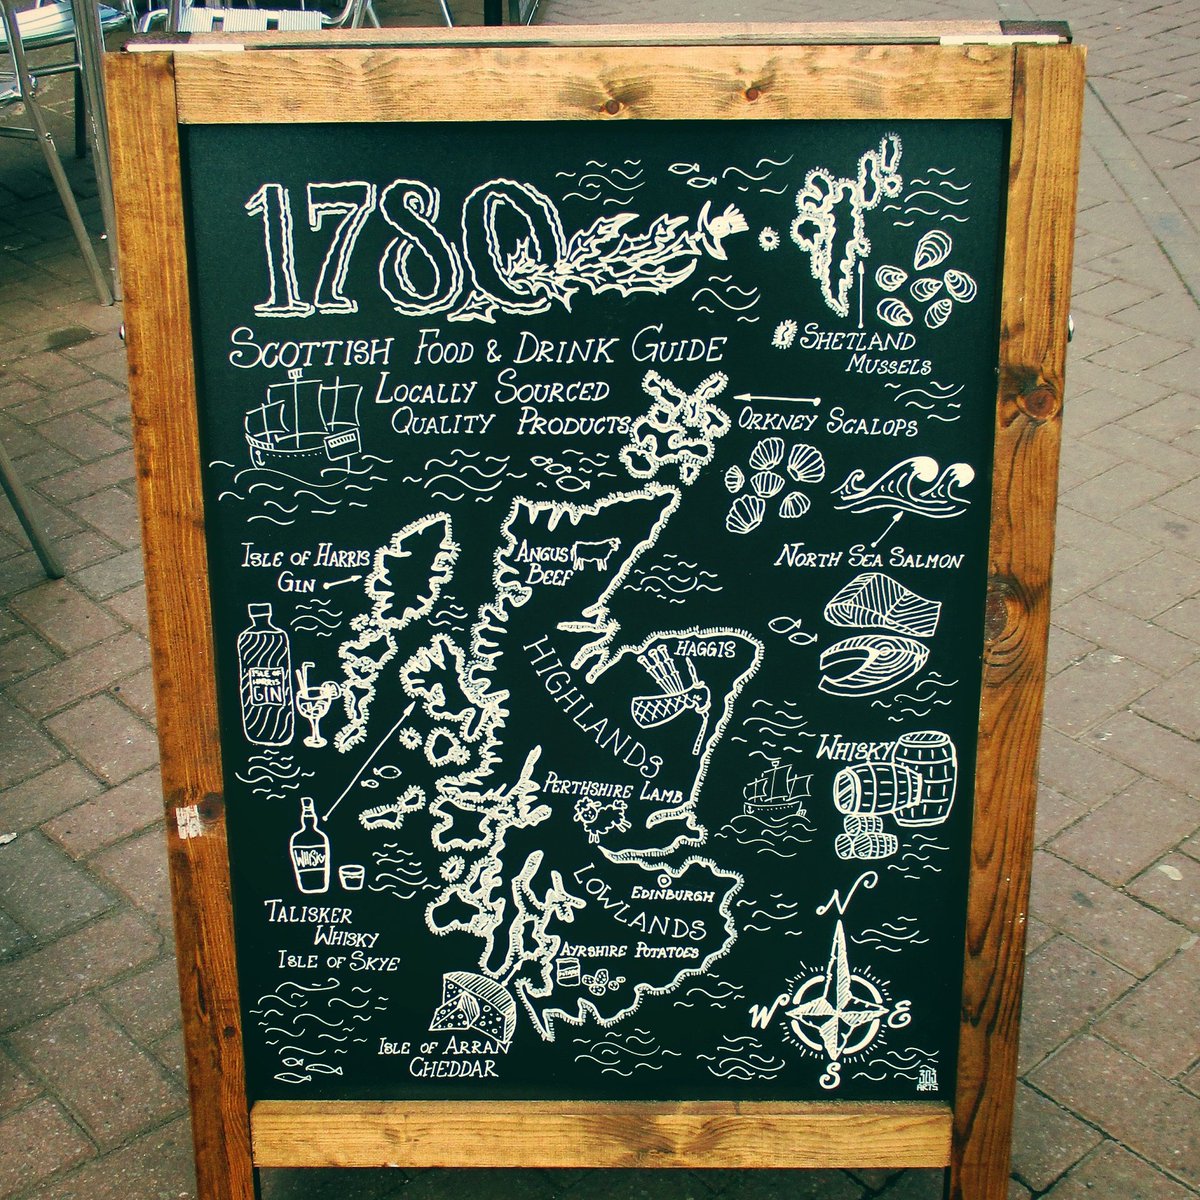 1780
SCOTTISH FOOD & DRINK GUIDE
LOCALLY SOURCED
QUALITY PRODUCTS
SHETLAND
MUSSELS
ORKNEY SCALOPS
NORTH SEA SALMON
ISLE OF HARRIS
GIN
ISLE OF
HARRIS
GIN
ANGUS
BEEF
HIGHLANDS
HAGGIS
WHISKY
PERTHSHIRE LAMB
WHISKY
TALISKER
WHISKY
ISLE OF SKYE
LOWLANDS
EDINBURGH
AYRSHIRE POTATOES
ISLE OF ARRAN
CHEDDAR
N
W
E
S
303
ARTS